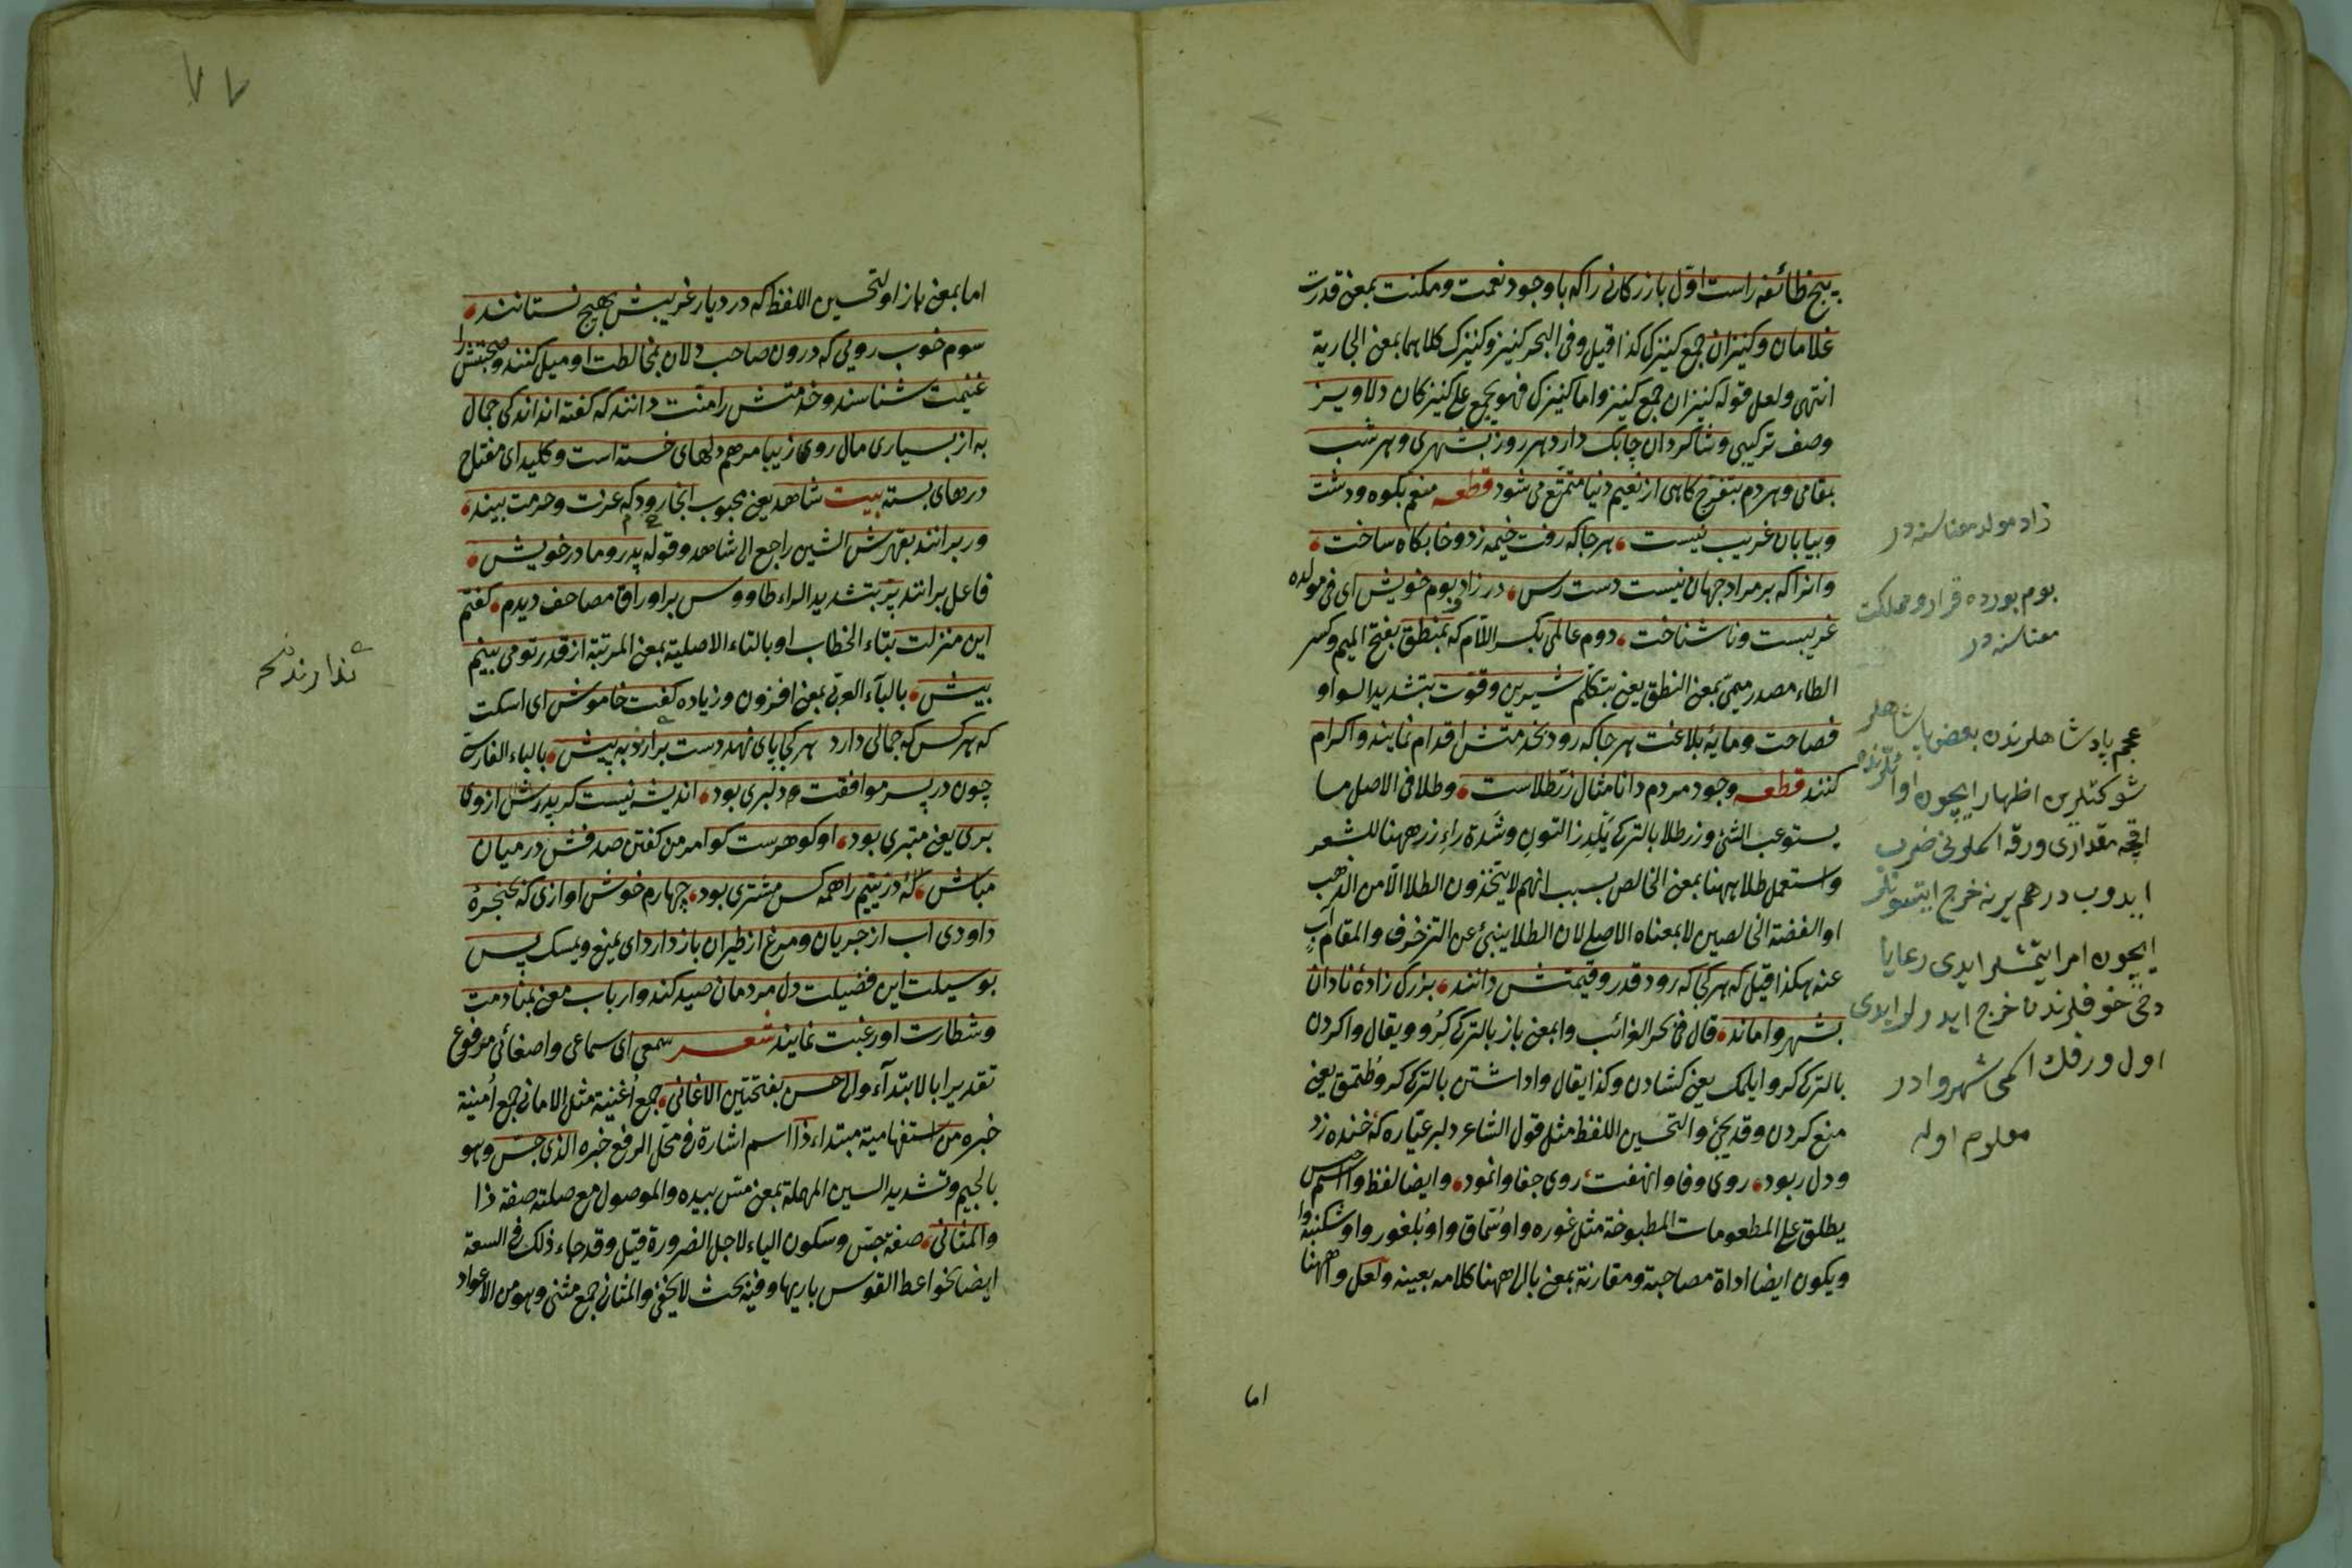 پنج طائفه راست اول بازرکانی را که با وجود نعمت و مکنت بمعنی قدرت
غلامان و کنیزان جمع کنیزک کذا قیل و فی البحر کنیز و کنیزک کلاهما بمعنی الجاریة
انتهی و لعل قوله کنیزان جمع کنیز و اما کنیزک فهو یجمع علی کنیزکان دلاویز
وصف ترکیبی و شاکردان چابک دارد هر روز بشهری و هر شب
بمقامی و هر دم بتفرج کاهی از نعیم دنیا متمتع می شود قطعه منعم بکوه و دشت
و بیابان غریب نیست هر جا که رفت خیمه زد و خابکاه ساخت
وانرا که بر مراد جهان نیست دست رس در زاد و بوم خویش ای فی مولده
غریبست و ناشناخت دوم عالمی بکسر اللام که بمنطق بفتح المیم و کسر
الطاء مصدر میمی بمعنی النطق یعنی بتکلم شیرین و قوت بتشدید الواو
فصاحت و مایهٔ بلاغت هر جا که رود بخدمتش اقدام نمایند و اکرام
کنند قطعه وجود مردم دانا مثال زر طلاست و طلا فی الاصل ما
یستوعب الشئ و زر طلا بالترکی یلدز التون و شدة راء زر ههنا للشعر
و استعمل طلا ههنا بمعنی الخالص بسبب انهم لا یتخذون الطلا الا من الذهب
او الفضة الخالصین لا بمعناه الاصلی لان الطلا ینبئ عن التزخرف و المقام آب
عنه هکذا قیل که هر کجا که رود قدر و قیمتش دانند بزرک زادهٔ نادان
بشهر وا ماند قال فی بحر الغرائب وا بمعنی باز بالترکی کرو و یقال وا کردن
بالترکی کرو ایلمک یعنی کشادن و کذا یقال وا داشتن بالترکی کرو طتمق یعنی
منع کردن و قد یجئ وا لتحسین اللفظ مثل قول الشاعر دلبر عیاره که خنده زد
و دل ربود روی وفا وا نهفت روی جفا وا نمود و ایضا لفظ وا اسم جنس
یطلق علی المطعومات المطبوخة مثل غوره وا و سماق وا و بلغور وا و شکنبه وا
و یکون ایضا اداة مصاحبة و مقارنة بمعنی با الی ههنا کلامه بعینه و لعل وا ههنا
اما
زاد مولد معناسنه در
بوم یورده قرار و مملکت
معناسنه در
عجم پادشاهلرندن بعض پاشاهلر
شوکتلرین اظهار ایچون
اقچه مقداری ورقه ضرب
ایدوب درهم یرینه خرج ایتسونلر
ایچون امر ایتمشلر ایدی رعایا
دخی خوفلرندن خرج ایدرلر ایدی
اول ورقک اسمی شهروا در
معلوم اوله
٧٧
اما بمعنی باز او لتحسین اللفظ که در دیار غریبش بهیچ نستانند
سوم خوب رویی که درون صاحب دلان بمخالطت او میل کنند و صحبتش را
غنیمت شناسند و خدمتش را منت دانند که کفته اند اندکی جمال
به از بسیاری مال روی زیبا مرهم دلهای خسته است و کلید ای مفتاح
درهای بسته بیت شاهد یعنی محبوب انجا رود که عزت و حرمت بیند
ور برانند بقهرش الشین راجع الی شاهد و قوله پدر و مادر خویش
فاعل برانند پر بتشدید الراء طاووس بر اوراق مصاحف دیدم کفتم
این منزلت بتاء الخطاب او بالتاء الاصلیة بمعنی المرتبة از قدر تو می بینم
بیش بالباء العربی بمعنی افزون و زیاده کفت خاموش ای اسکت
که هر کس که جمالی دارد هر کجا پای نهد دست بدارند به پیش بالباء الفارسی
چون در پسر موافقت و دلبری بود اندیشه نیست کر پدرش از وی
بری یعنی متبری بود او کوهرست کو امر من کفتن صدفش در میان
مباش که در یتیم را همه کس مشتری بود چهارم خوش اوازی که بحنجرهٔ
داودی اب از جریان و مرغ از طیران باز دارد ای یمنع و یمسک پس
بوسیلت این فضیلت دل مردمان صید کند و ارباب معنی بمنادمت
و شطارت او رغبت نمایند شعر سمعی ای سماعی و اصغائی مرفوع
تقدیرا بالابتداء و الی حسن بفتحتین الاغانی جمع اغنیة مثل الامانی جمع امنیة
خبره من استفهامیة مبتداء ذا اسم اشارة فی محل الرفع خبره الذی جس و هو
بالجیم و تشدید السین المهملة بمعنی مس بیده و الموصول مع صلته صفة ذا
و المثانی صفة جس و سکون الیاء لاجل الضرورة قیل و قد جاء ذلک فی السعة
ایضا نحو اعط القوس باریها و فیه بحث لا یخفی و المثانی جمع مثنی و هو من الاعواد